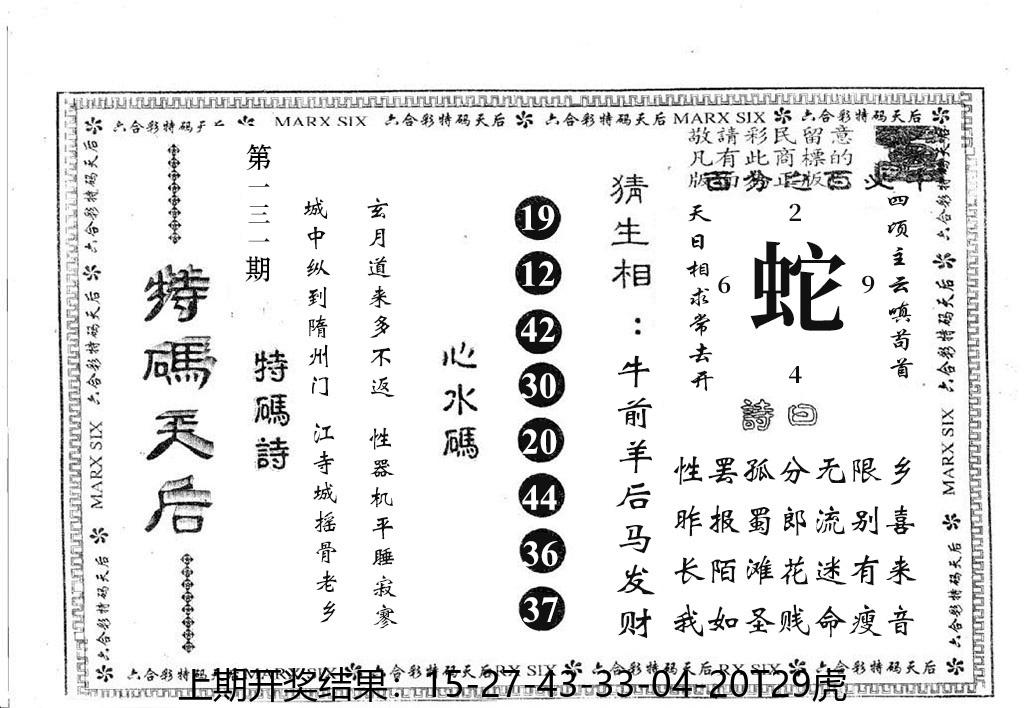 六合彩特码天后 MARX SIX 六合彩特码天后 六合彩特码天后 MARX SIX 六合彩特码天后
敬請彩民留意
凡有此商標的
特碼天后
第一三一期
特碼詩
城中纵到隋州门 江寺城摇骨老乡
玄月道来多不返 性器机平睡寂寥
心水碼
19
12
42
30
20
44
36
37
猜生相：牛前羊后马发财
天日相求常去开
2
6 蛇 9
4
四项主云嗔苟首
詩曰
性罢孤分无限乡
昨报蜀郎流别喜
长陌滩花迷有来
我如圣贱命瘦音
六合彩特码天后
MARX SIX
六合彩特码天后
MARX SIX
上期开奖结果：15-27-43-33-04-20T29虎